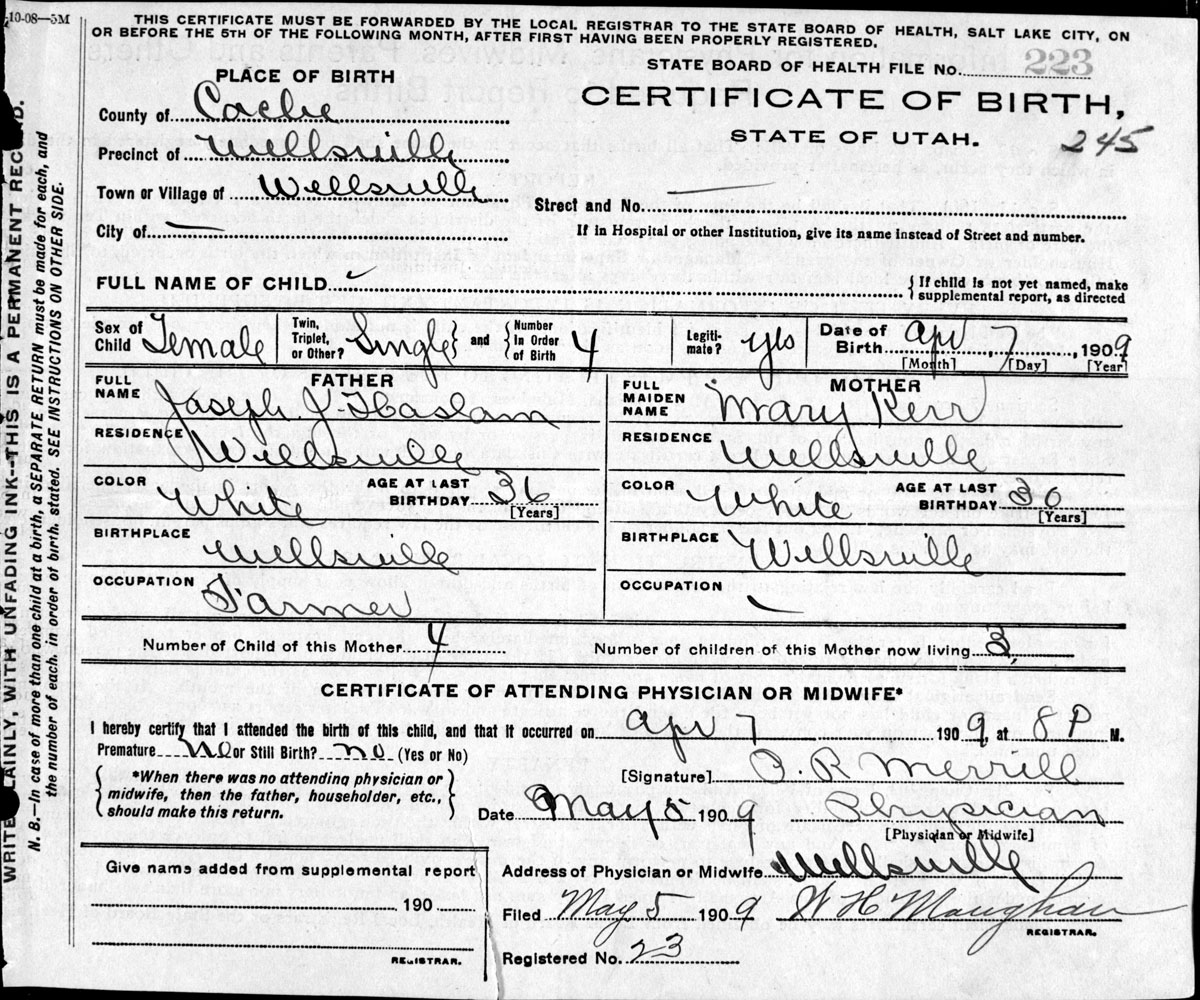 10-08—5M
THIS CERTIFICATE MUST BE FORWARDED BY THE LOCAL REGISTRAR TO THE STATE BOARD OF HEALTH, SALT LAKE CITY, ON
OR BEFORE THE 5TH OF THE FOLLOWING MONTH, AFTER FIRST HAVING BEEN PROPERLY REGISTERED.
STATE BOARD OF HEALTH FILE No. 223
PLACE OF BIRTH
CERTIFICATE OF BIRTH,
STATE OF UTAH.
245
County of Cache
Precinct of Wellsville
Town or Village of Wellsville
Street and No. —
City of —
If in Hospital or other Institution, give its name instead of Street and number.
FULL NAME OF CHILD
{ If child is not yet named, make
supplemental report, as directed
Sex of Child Female
Twin, Triplet, or Other? Single } and { Number In Order of Birth 4
Legiti-mate? yes
Date of Birth Apr, 7, 1909
[Month] [Day] [Year]
FATHER
FULL NAME Joseph J. Haslam
RESIDENCE Wellsville
COLOR White
AGE AT LAST BIRTHDAY 36
[Years]
BIRTHPLACE Wellsville
OCCUPATION Farmer
MOTHER
FULL MAIDEN NAME Mary Kerr
RESIDENCE Wellsville
COLOR White
AGE AT LAST BIRTHDAY 36
[Years]
BIRTHPLACE Wellsville
OCCUPATION
Number of Child of this Mother 4
Number of children of this Mother now living 3
CERTIFICATE OF ATTENDING PHYSICIAN OR MIDWIFE*
I hereby certify that I attended the birth of this child, and that it occurred on Apr 7 1909, at 8 P M.
Premature No or Still Birth? no (Yes or No)
{ *When there was no attending physician or
midwife, then the father, householder, etc.,
should make this return. }
[Signature] O. R Merrill
Date May 5 1909 Physician
[Physician or Midwife]
Address of Physician or Midwife Wellsville
Filed May 5 1909 W H Maughan
REGISTRAR.
Registered No. 23
Give name added from supplemental report
190
REGISTRAR.
WRITE PLAINLY, WITH UNFADING INK--THIS IS A PERMANENT RECORD.
N. B.—In case of more than one child at a birth, a SEPARATE RETURN must be made for each, and
the number of each, in order of birth, stated. SEE INSTRUCTIONS ON OTHER SIDE.